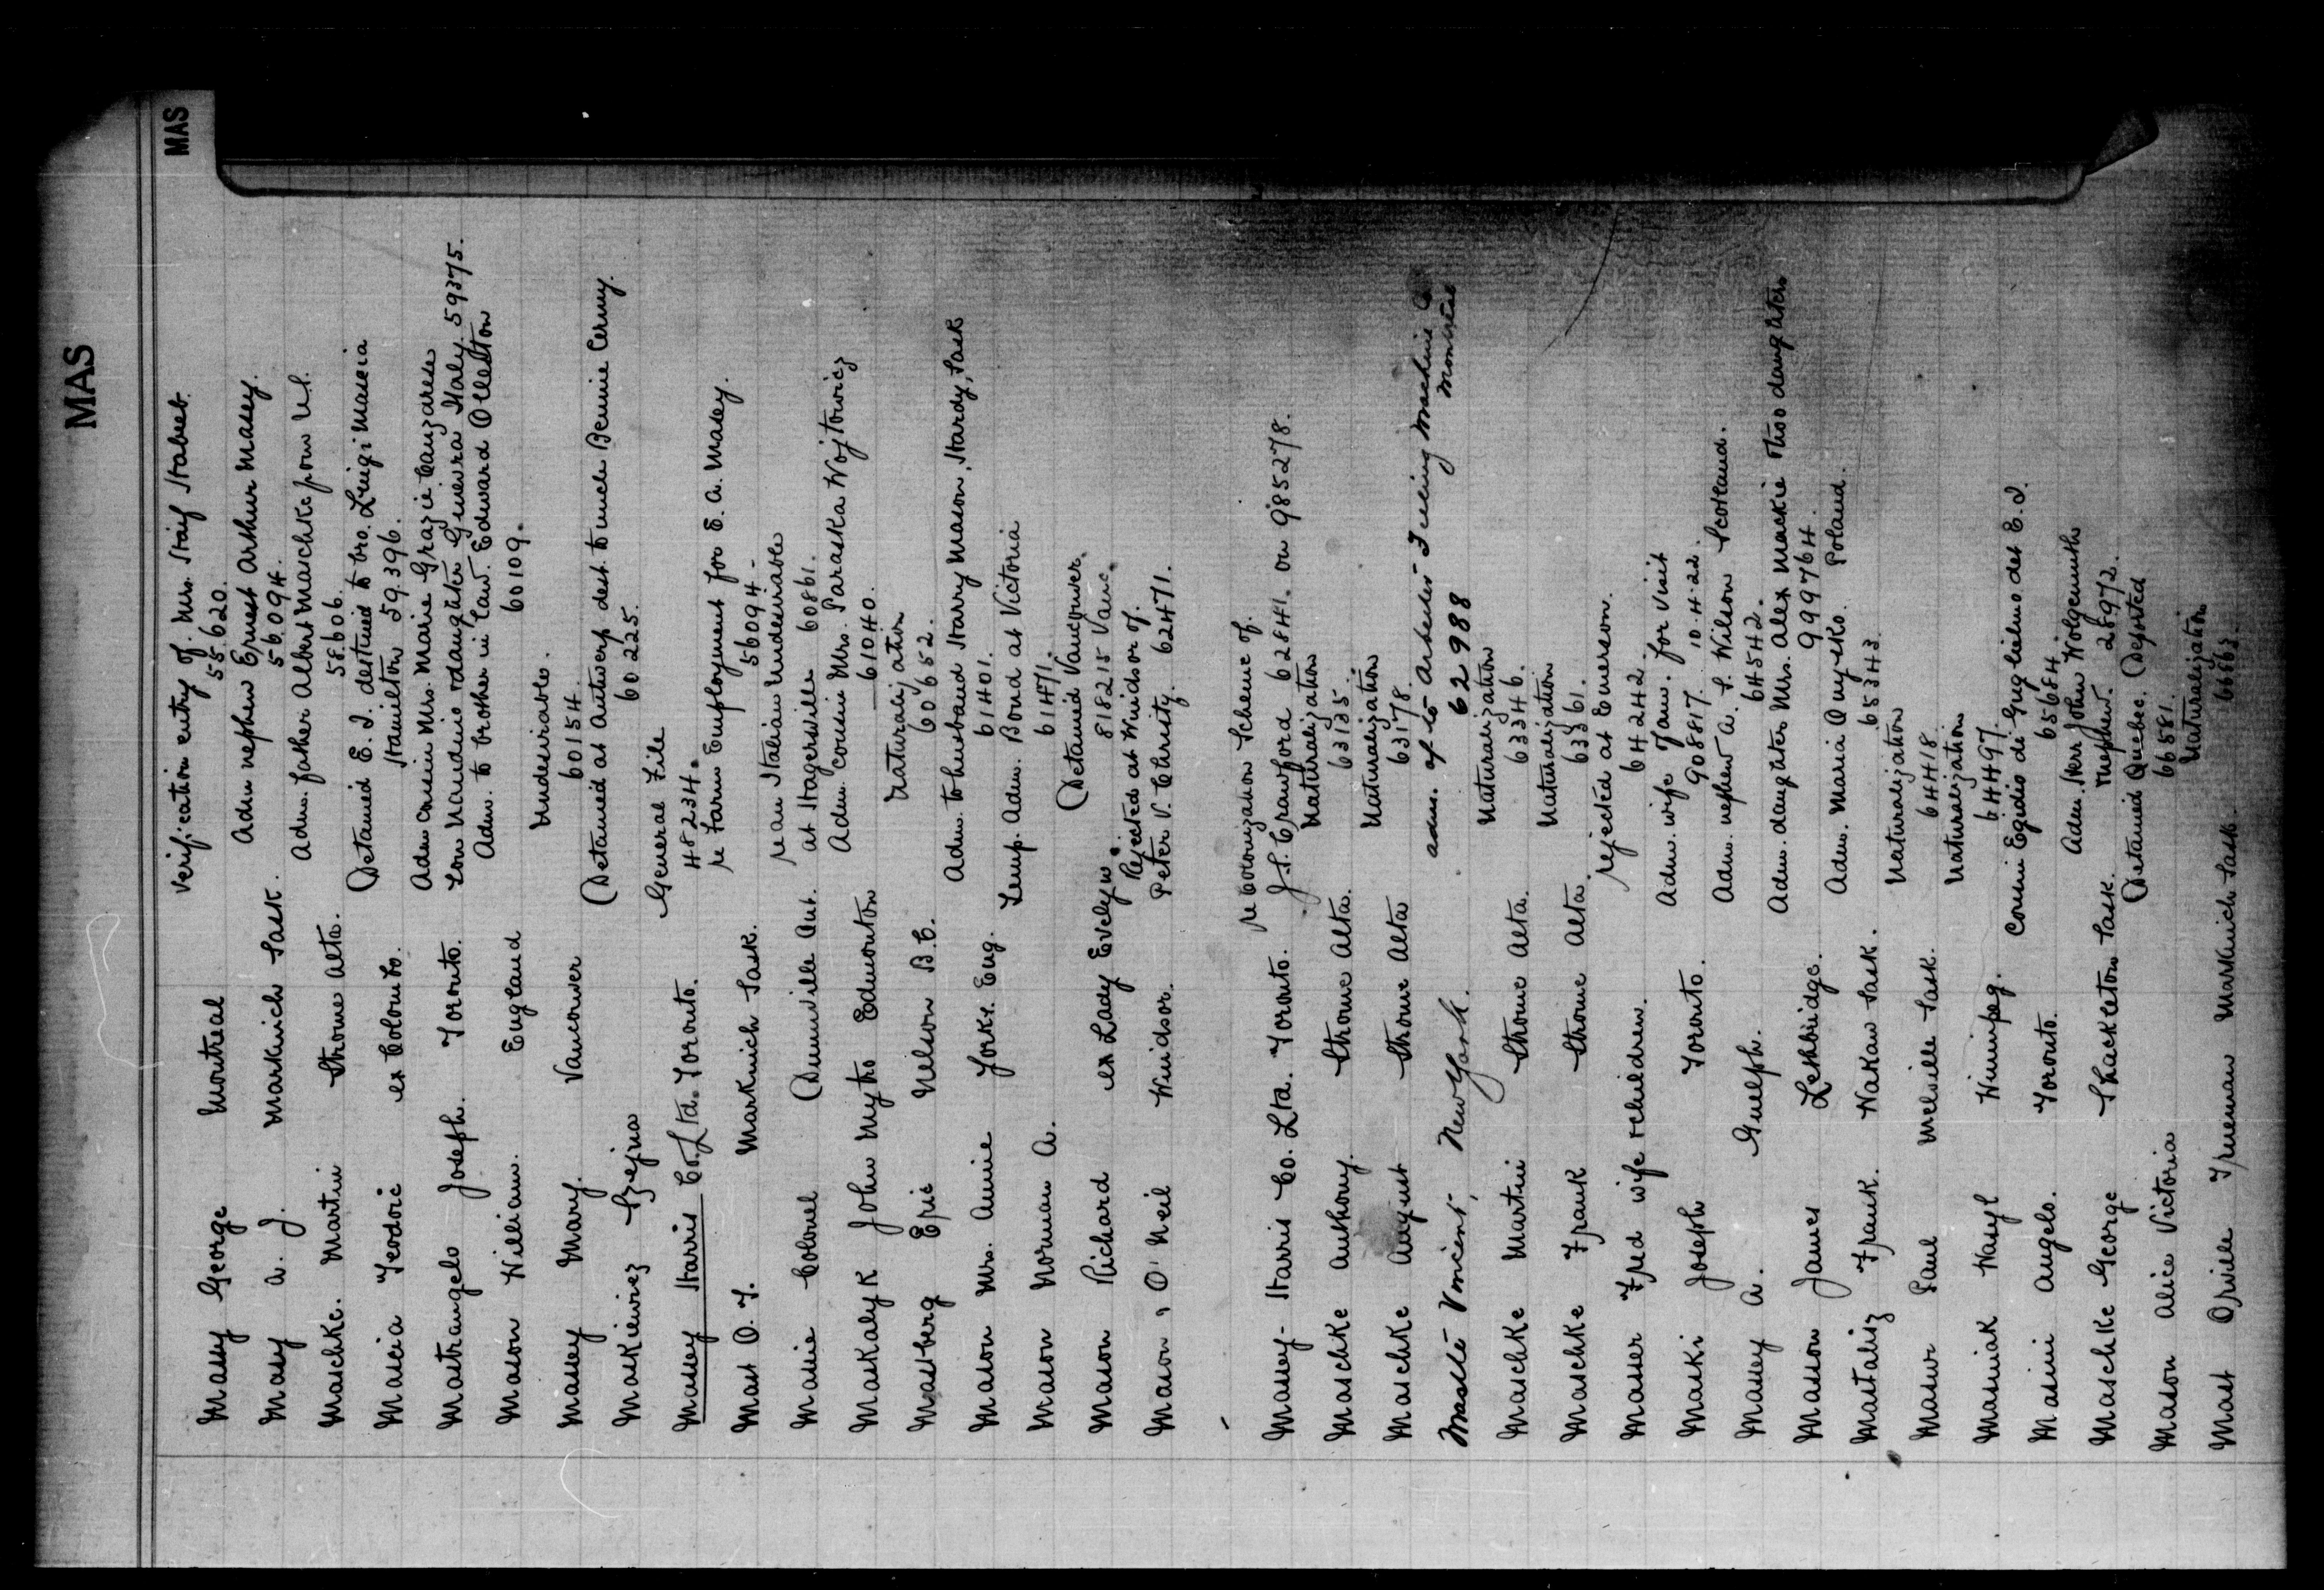 MAS
MAS
Verification entry of Mrs. Staif Stabeet
Massey George Montreal 55620.
Adm nephew Ernest Arthur Massey.
Massy A. J. Markinch Sask. 56094.
Adm. father Albert Maschke from U.S.
Maschke. Martin Strome Alta. 58606.
Detained E. I. destined to bro. Luigi Mascia
Mascia Teodoric ex Colombo. Hamilton 59396.
Adm cousin Mrs. Marie Grazie Canzarese
Mastrangelo Joseph. Toronto. son Nundino & daughter Guievra Italy. 59375.
Adm. to brother in Law. Edward Olleston
Mason William. England 60109.
Undesirable.
Massey Mary. Vancouver 60154.
Detained at Antwerp dest. to uncle Bennie Cerny.
Maskiewicz Szejna 60225.
General File
Massey Harris Co. Ltd. Toronto. 48234.
re Farm Employment for E. A. Massey.
Mast O. T. Markinch Sask. 56094-
re an Italian Undesirable
Massie Colonel Dunnville Ont. at Hagersville 60861.
Adm cousin Mrs. Paraska Wojtowicz
Maskalyk John Mytro Edmonton 61040.
Naturalization
Mastberg Eric Nelson B.C. 60652.
Adm. to husband Harry Mason, Hardy, Sask
Mason Mrs. Annie Yorks. Eng. 61401.
Temp. Adm. Bond at Victoria
Mason Norman A. 61471.
Detained Vancouver.
Mason Richard ex Lady Evelyn. 818215 Vanc.
Rejected at Windsor of.
Mason, O'Neil Windsor. Peter V. Christy. 62471.
re Colonization Scheme of.
Massey-Harris Co. Ltd. Toronto. J. S. Crawford 62841. on 985278.
Naturalization
Maschke Anthony. Strome Alta. 63135.
Naturalization
Maschke August Strome Alta 63178.
adm. of to Machine Co
Montreal
Vincent, New York. 62988
Naturalization
Maschke Martin Strome Alta. 63346.
Naturalization
Maschke Frank Strome Alta 63361.
rejected at Emerson.
Masser Fred wife & children. 64242.
Adm. wife Jam. for visit
Maski Joseph Toronto. 908817. 10.4.22.
Adm. nephew A. S. Wilson Scotland.
Massey A. Guelph. 64542.
Adm. daughter Mrs. Alex Mackie & two daughters
Masson James Lethbridge. 999764.
Adm. Maria Onysko. Poland.
Mastalisz Frank. Wakaw Sask. 65343
Naturalization
Masur Paul Melville Sask. 64418
Naturalization
Masniak Wasyl Winnipeg. 64497.
cousin Egidio di Guglielmo det E. I.
Masini Angelo. Toronto. 65684.
Adm. Herr John Wolgemuths
Maschke George Shackleton Sask. nephew. 28972.
Detained Quebec. Deported
Mason Alice Victoria 66581.
Naturalization
Mast Orville Trueman Markinch Sask. 6663.